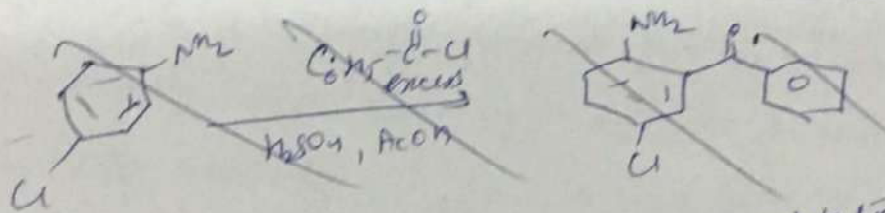 NH2
C6H5-C-Cl
O
excess
H2SO4, AcOH
Cl
NH2
O
Cl